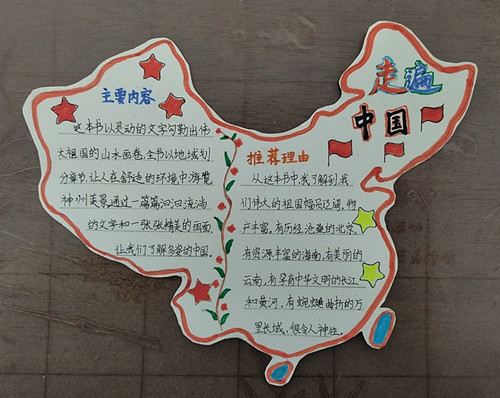 走遍
中国
主要内容
这本书以灵动的文字勾勒出伟
大祖国的山水画卷,全书以地域划
分章节,让人在舒适的环境中游览
神州美景。通过一篇篇汩汩流淌
的文字和一张张精美的画面,
让我们了解多姿的中国。
推荐理由
从这本书中,我了解到我
们伟大的祖国幅员辽阔,物
产丰富。有历经沧桑的北京,
有资源丰富的海南,有美丽的
云南,有孕育中华文明的长江
和黄河,有蜿蜒曲折的万
里长城,很令人神往。